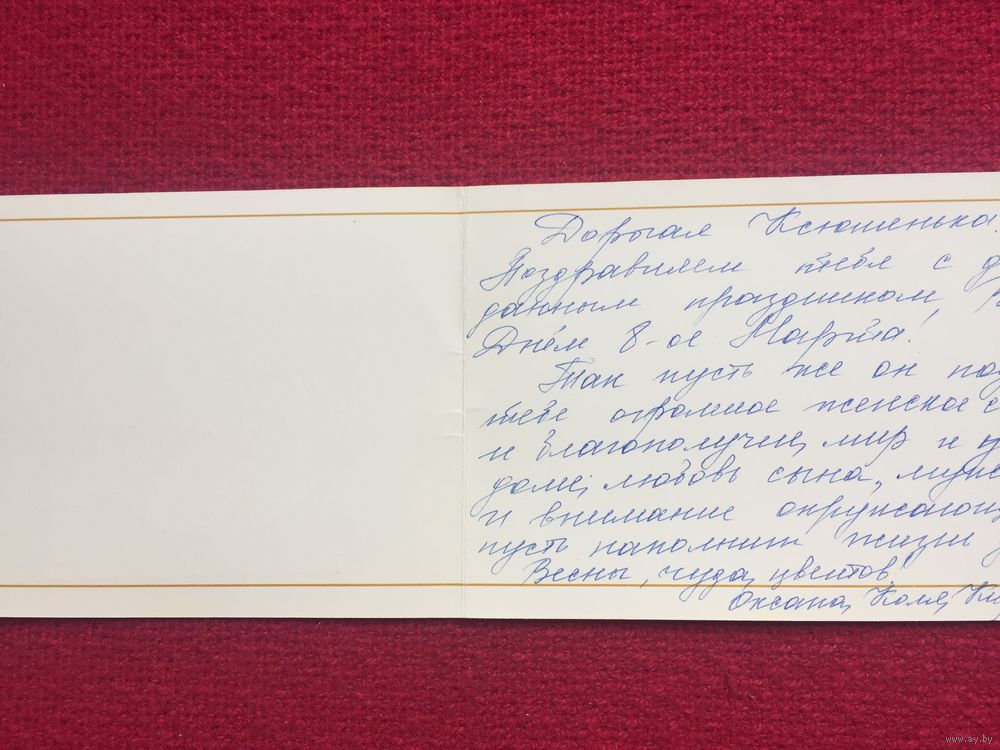 Дорогая Ксюшенька
Поздравляем тебя с
данным праздником,
Днём 8-ое Марта!
Так пусть же он
тебе огромное женское
и благополучия, мир и
доме, любовь сына,
и внимание
пусть наполнит жизнь
Весны, чуда, цветов!
Оксана, Коля,
www.ay.by